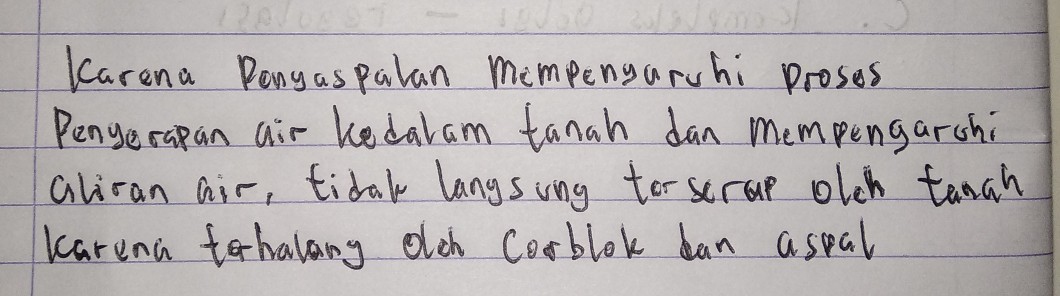 Karena Pengaspalan mempengaruhi proses
Pengerapan air kedalam tanah dan mempengaruhi
aliran air, tidak langsung terserap oleh tanah
karena terhalang oleh Corblok dan aspal